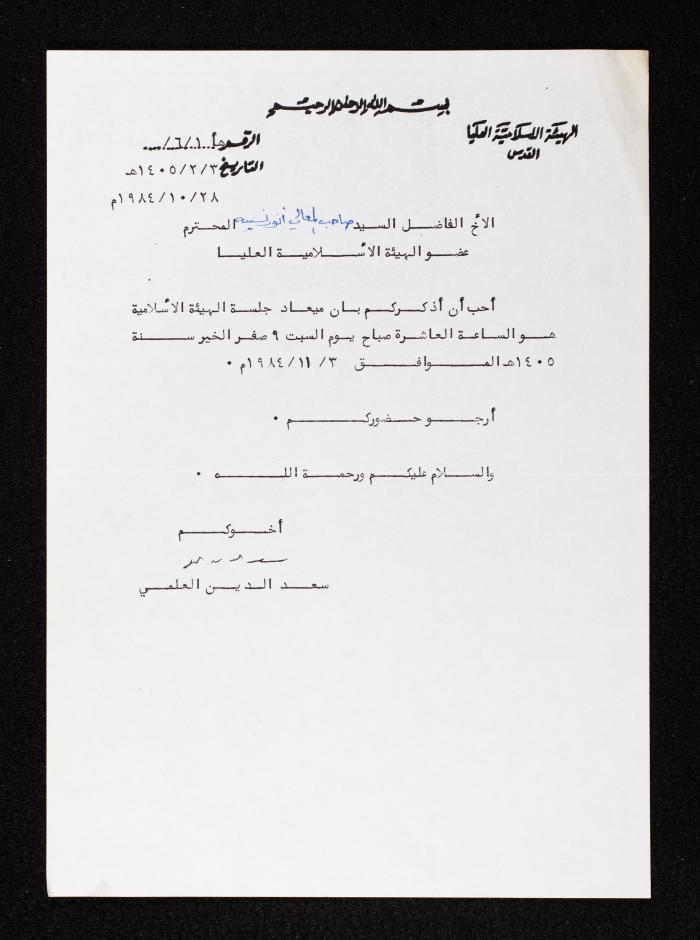 بسم الله الرحمن الرحيم
الهيئة الاسلامية العليا
القدس
الرقم هأ/١/٦/
التاريخ ١٤٠٥/٢/٣هـ
١٩٨٤/١٠/٢٨م
الأخ الفاضل السيد صاحب المعالي أنور نسيبه المحترم
عضو الهيئة الأسلامية العليا
أحب أن أذكركم بان ميعاد جلسة الهيئة الأسلامية
هو الساعة العاشرة صباح يوم السبت ٩ صفر الخير سنة
١٤٠٥هـ الموافق ١٩٨٤/١١/٣م ٠
أرجو حضوركم ٠
والسلام عليكم ورحمة الله ٠
أخوكم
سعد الدين العلمي